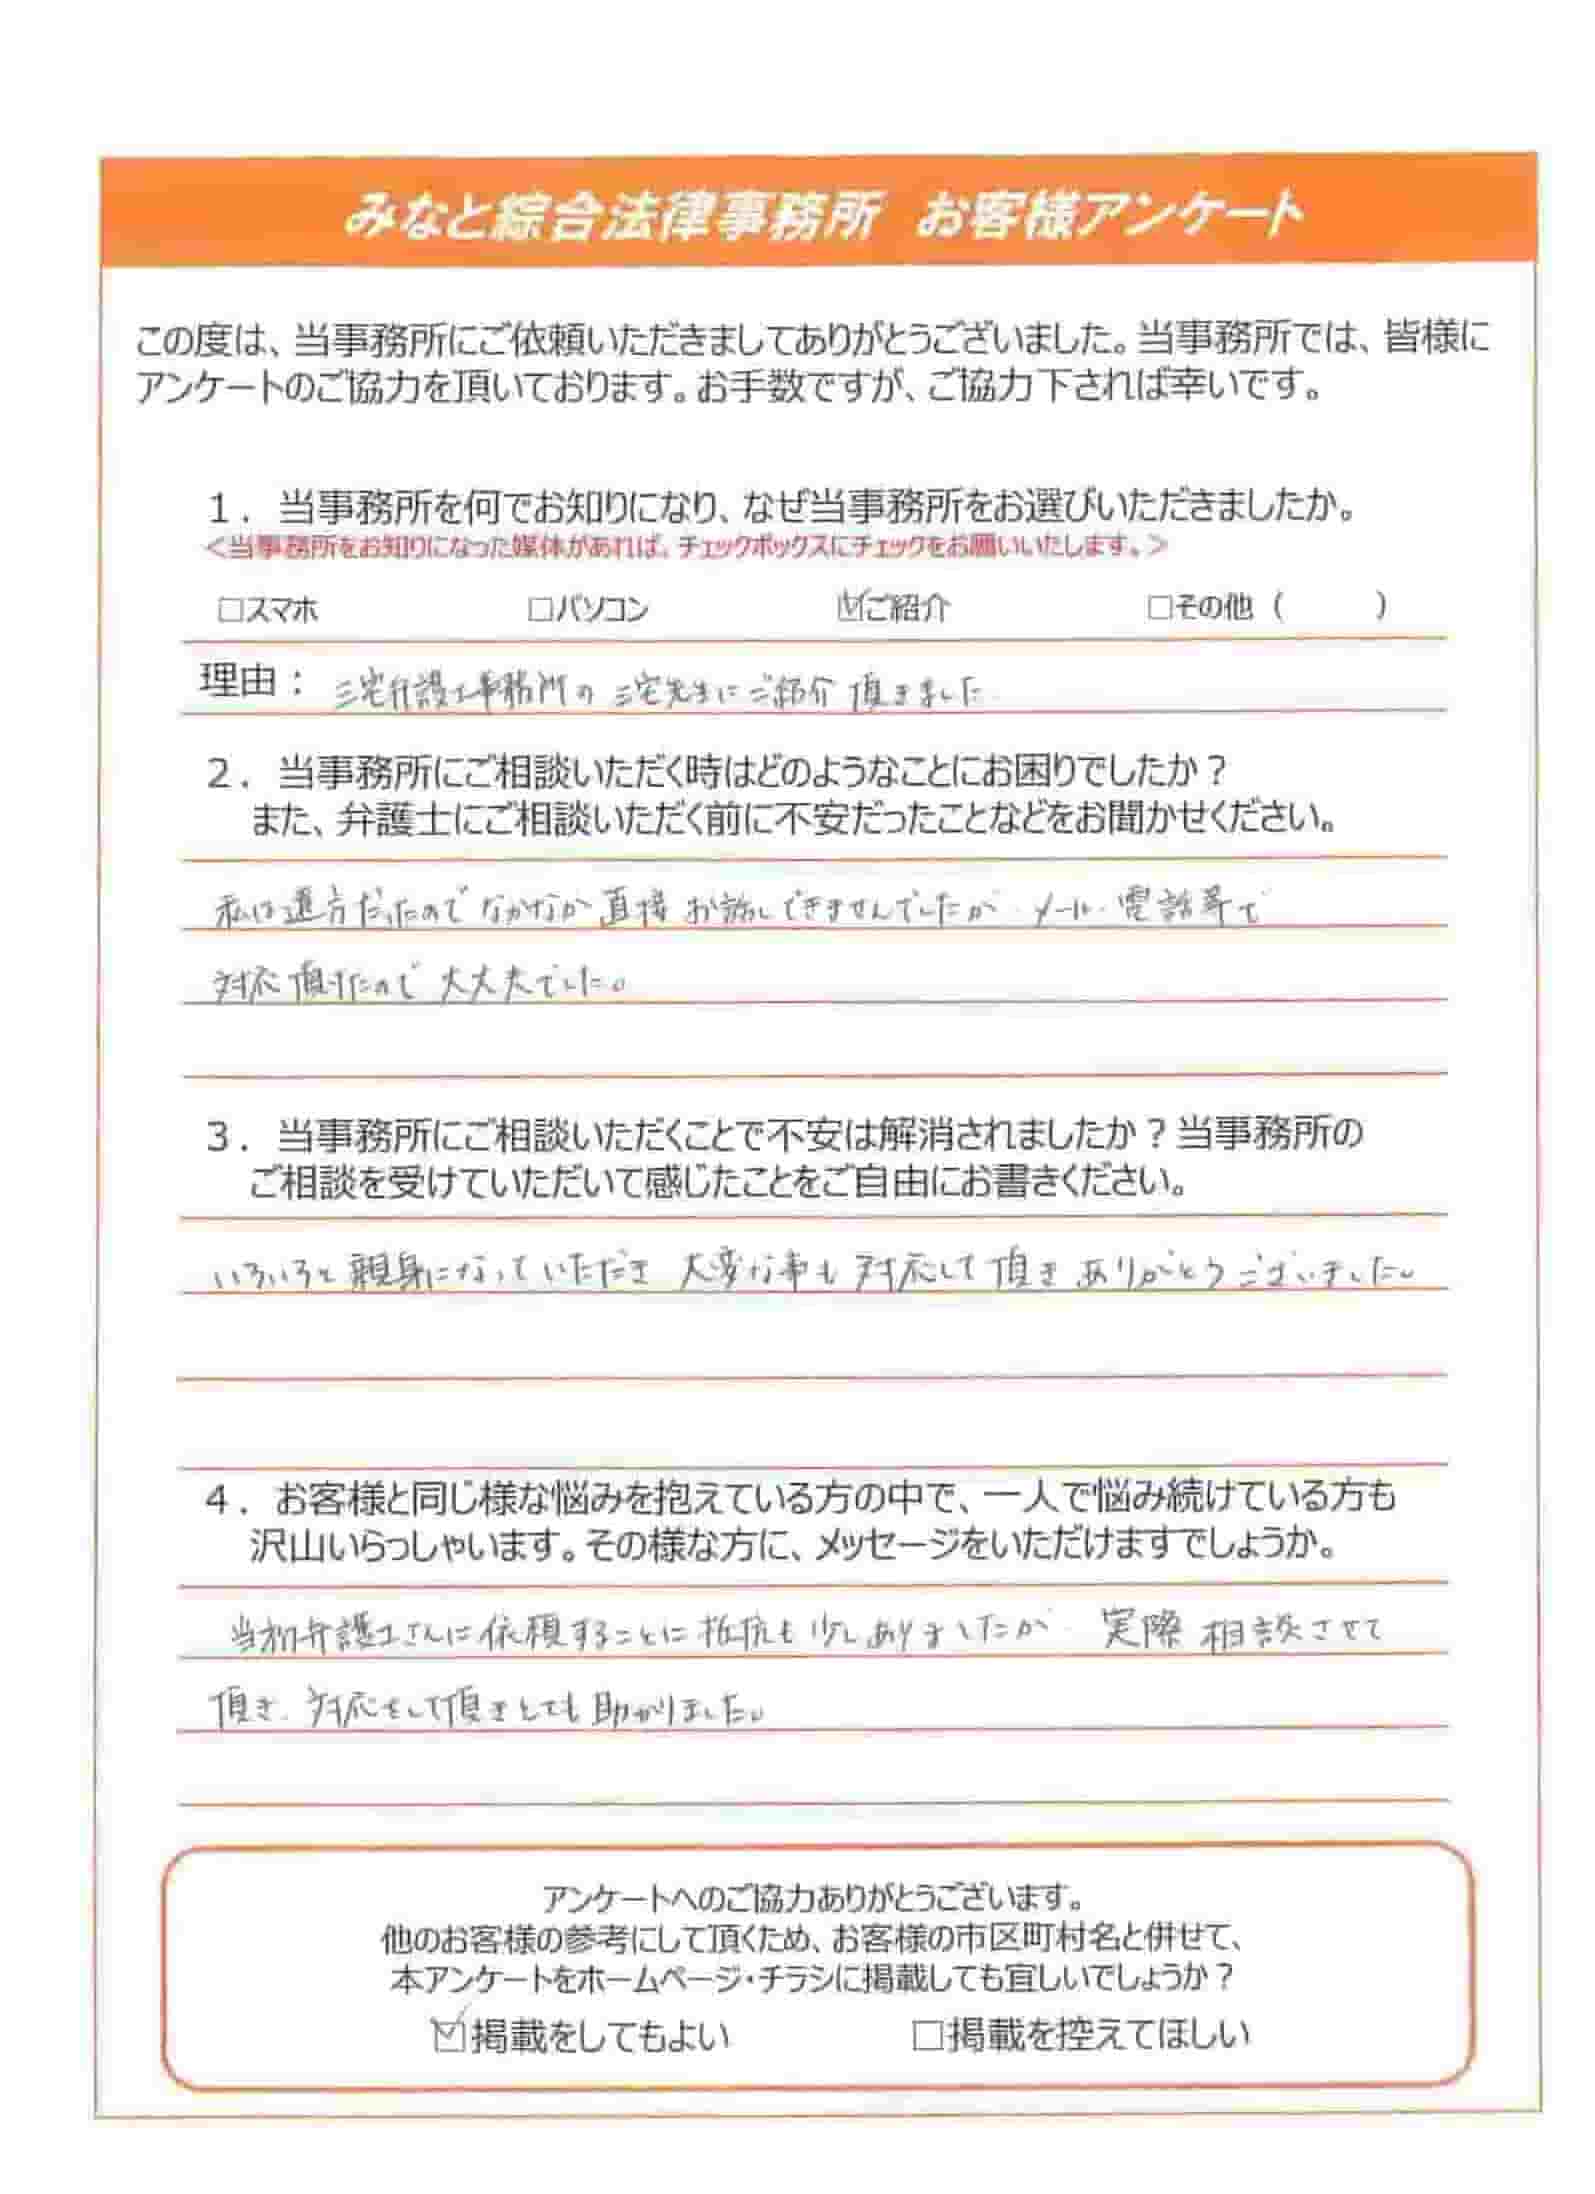 みなと綜合法律事務所 お客様アンケート
この度は、当事務所にご依頼いただきましてありがとうございました。当事務所では、皆様に
アンケートのご協力を頂いております。お手数ですが、ご協力下されば幸いです。
1．当事務所を何でお知りになり、なぜ当事務所をお選びいただきましたか。
＜当事務所をお知りになった媒体があれば、チェックボックスにチェックをお願いいたします。＞
□スマホ □パソコン ☑ご紹介 □その他（ ）
理由： 三宅弁護士事務所の 三宅先生にご紹介 頂きました
2．当事務所にご相談いただく時はどのようなことにお困りでしたか？
また、弁護士にご相談いただく前に不安だったことなどをお聞かせください。
私は遠方だったのでなかなか直接お話しできませんでしたが、メール、電話等で
対応頂けたので大丈夫でした。
3．当事務所にご相談いただくことで不安は解消されましたか？当事務所の
ご相談を受けていただいて感じたことをご自由にお書きください。
いろいろと親身になっていただき 大変な事も対応して頂きありがとうございました。
4．お客様と同じ様な悩みを抱えている方の中で、一人で悩み続けている方も
沢山いらっしゃいます。その様な方に、メッセージをいただけますでしょうか。
当初弁護士さんに依頼することに抵抗も少しありましたが、実際相談させて
頂き、対応をして頂きとても助かりました。
アンケートへのご協力ありがとうございます。
他のお客様の参考にして頂くため、お客様の市区町村名と併せて、
本アンケートをホームページ・チラシに掲載しても宜しいでしょうか？
☑掲載をしてもよい □掲載を控えてほしい